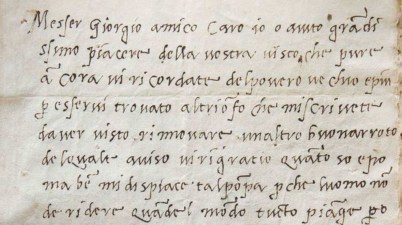 Messer giorgio amico caro io o auto grandi
ssimo piacere della vostra visto che pure
ancora vi ricordate del povero vechio e piu
p esservi trovato al triōfo che mi scrivete
daver visto rinnovare unaltro buonarroto
del quale aviso vi rigratio quāto so e po
ma bē mi dispiace tal pōpa p che luomo nō
de ridere quādel mōdo tucto piāge po